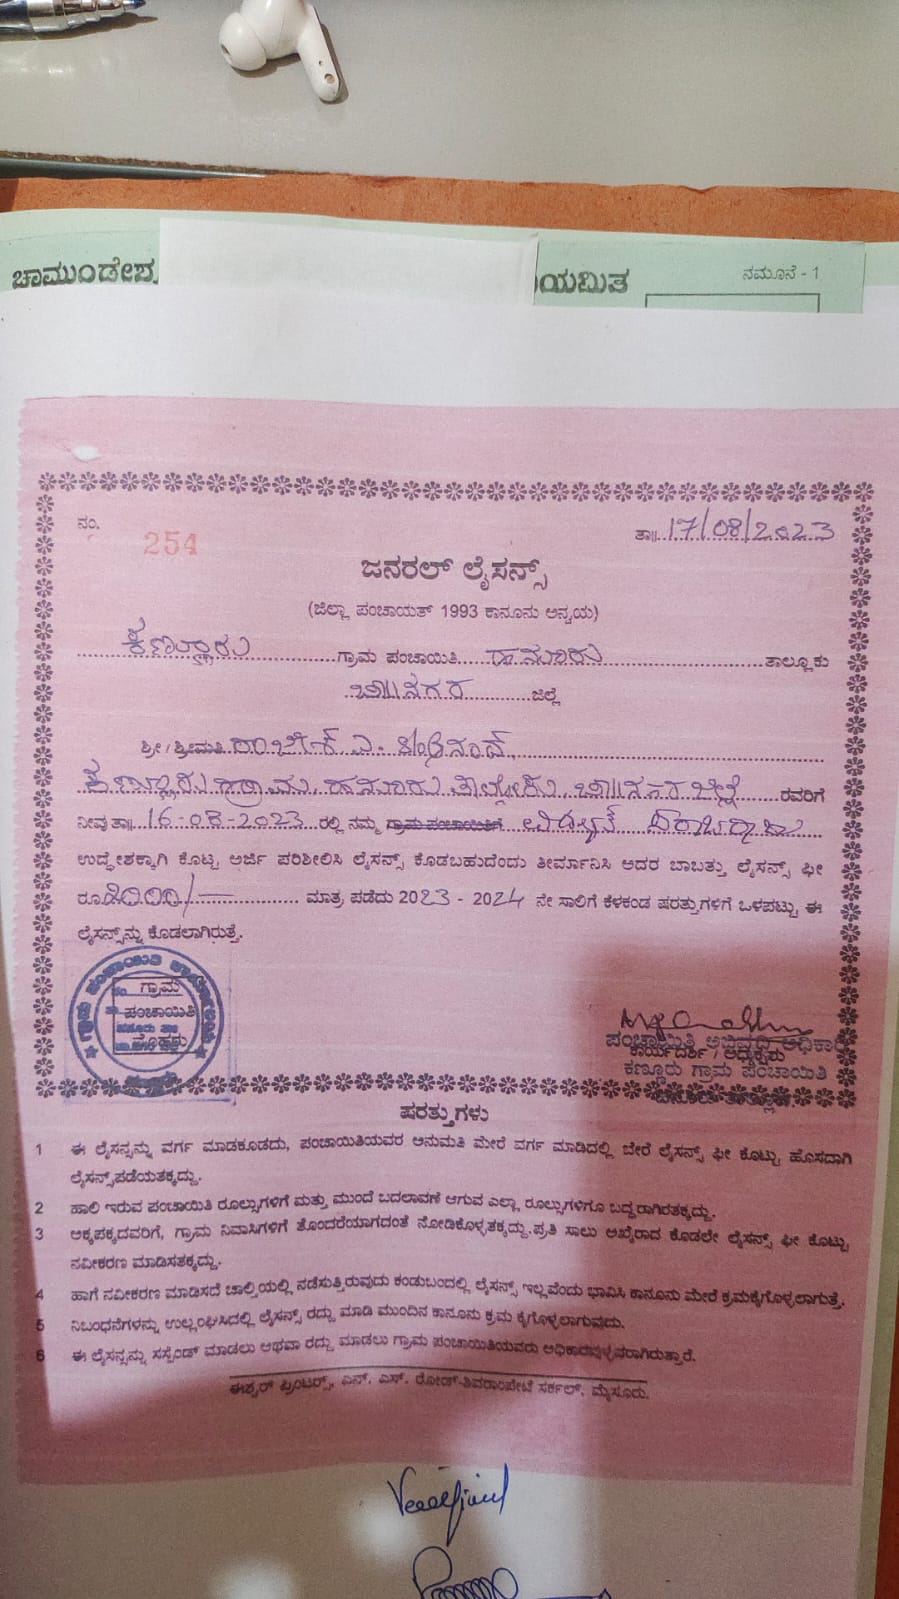 ಚಾಮುಂಡೇಶ್ವ
ಯಮಿತ
ನಮೂನೆ - 1
ನಂ. 254
ತಾ॥ 17/08/2023
ಜನರಲ್ ಲೈಸನ್ಸ್
(ಜಿಲ್ಲಾ ಪಂಚಾಯತ್ 1993 ಕಾನೂನು ಅನ್ವಯ)
ಕಣ್ಣೂರು ಗ್ರಾಮ ಪಂಚಾಯಿತಿ ಹನೂರು ತಾಲ್ಲೂಕು
ಚಾ॥ನಗರ ಜಿಲ್ಲೆ
ಶ್ರೀ / ಶ್ರೀಮತಿ
ಕಣ್ಣೂರು ಗ್ರಾಮ ಹನೂರು ತಾಲ್ಲೋಕು ಚಾ॥ನಗರ ಜಿಲ್ಲೆ ರವರಿಗೆ
ನೀವು ತಾ॥ 16-08-2023 ರಲ್ಲಿ ನಮ್ಮ ಗ್ರಾಮ ಪಂಚಾಯಿತಿಗೆ
ಉದ್ಧೇಶಕ್ಕಾಗಿ ಕೊಟ್ಟ ಅರ್ಜಿ ಪರಿಶೀಲಿಸಿ ಲೈಸನ್ಸ್ ಕೊಡಬಹುದೆಂದು ತೀರ್ಮಾನಿಸಿ ಅದರ ಬಾಬತ್ತು ಲೈಸನ್ಸ್ ಫೀ
ರೂ 2000/- ಮಾತ್ರ ಪಡೆದು 2023 - 2024 ನೇ ಸಾಲಿಗೆ ಕೆಳಕಂಡ ಷರತ್ತುಗಳಿಗೆ ಒಳಪಟ್ಟು ಈ
ಲೈಸನ್ಸ್‌ನ್ನು ಕೊಡಲಾಗಿರುತ್ತೆ.
ಗ್ರಾಮ
ಪಂಚಾಯಿತಿ
ಮೊಹರು
ಪಂಚಾಯಿತಿ ಅಭಿವೃದ್ಧಿ ಅಧಿಕಾರಿ
ಕಾರ್ಯದರ್ಶಿ / ಅಧ್ಯಕ್ಷರು
ಕಣ್ಣೂರು ಗ್ರಾಮ ಪಂಚಾಯಿತಿ
ಹನೂರು ತಾಲ್ಲೂಕು.
ಷರತ್ತುಗಳು
1 ಈ ಲೈಸನ್ಸನ್ನು ವರ್ಗ ಮಾಡಕೂಡದು, ಪಂಚಾಯಿತಿಯವರ ಅನುಮತಿ ಮೇರೆ ವರ್ಗ ಮಾಡಿದಲ್ಲಿ ಬೇರೆ ಲೈಸನ್ಸ್ ಫೀ ಕೊಟ್ಟು ಹೊಸದಾಗಿ
ಲೈಸನ್ಸ್ ಪಡೆಯತಕ್ಕದ್ದು.
2 ಹಾಲಿ ಇರುವ ಪಂಚಾಯಿತಿ ರೂಲ್ಸುಗಳಿಗೆ ಮತ್ತು ಮುಂದೆ ಬದಲಾವಣೆ ಆಗುವ ಎಲ್ಲಾ ರೂಲ್ಸುಗಳಿಗೂ ಬದ್ಧರಾಗಿರತಕ್ಕದ್ದು.
3 ಅಕ್ಕಪಕ್ಕದವರಿಗೆ, ಗ್ರಾಮ ನಿವಾಸಿಗಳಿಗೆ ತೊಂದರೆಯಾಗದಂತೆ ನೋಡಿಕೊಳ್ಳತಕ್ಕದ್ದು.ಪ್ರತಿ ಸಾಲು ಅಖೈರಾದ ಕೂಡಲೇ ಲೈಸನ್ಸ್ ಫೀ ಕೊಟ್ಟು
ನವೀಕರಣ ಮಾಡಿಸತಕ್ಕದ್ದು.
4 ಹಾಗೆ ನವೀಕರಣ ಮಾಡಿಸದೆ ಚಾಲ್ತಿಯಲ್ಲಿ ನಡೆಸುತ್ತಿರುವುದು ಕಂಡುಬಂದಲ್ಲಿ ಲೈಸನ್ಸ್ ಇಲ್ಲವೆಂದು ಭಾವಿಸಿ ಕಾನೂನು ಮೇರೆ ಕ್ರಮಕೈಗೊಳ್ಳಲಾಗುತ್ತೆ.
5 ನಿಬಂಧನೆಗಳನ್ನು ಉಲ್ಲಂಘಿಸಿದಲ್ಲಿ ಲೈಸನ್ಸ್ ರದ್ದು ಮಾಡಿ ಮುಂದಿನ ಕಾನೂನು ಕ್ರಮ ಕೈಗೊಳ್ಳಲಾಗುವುದು.
6 ಈ ಲೈಸನ್ಸನ್ನು ಸಸ್ಪೆಂಡ್ ಮಾಡಲು ಅಥವಾ ರದ್ದು ಮಾಡಲು ಗ್ರಾಮ ಪಂಚಾಯಿತಿಯವರು ಅಧಿಕಾರವುಳ್ಳವರಾಗಿರುತ್ತಾರೆ.
ಈಶ್ವರ್ ಪ್ರಿಂಟರ್ಸ್, ಎನ್. ಎಸ್. ರೋಡ್-ಶಿವರಾಂಪೇಟೆ ಸರ್ಕಲ್, ಮೈಸೂರು.